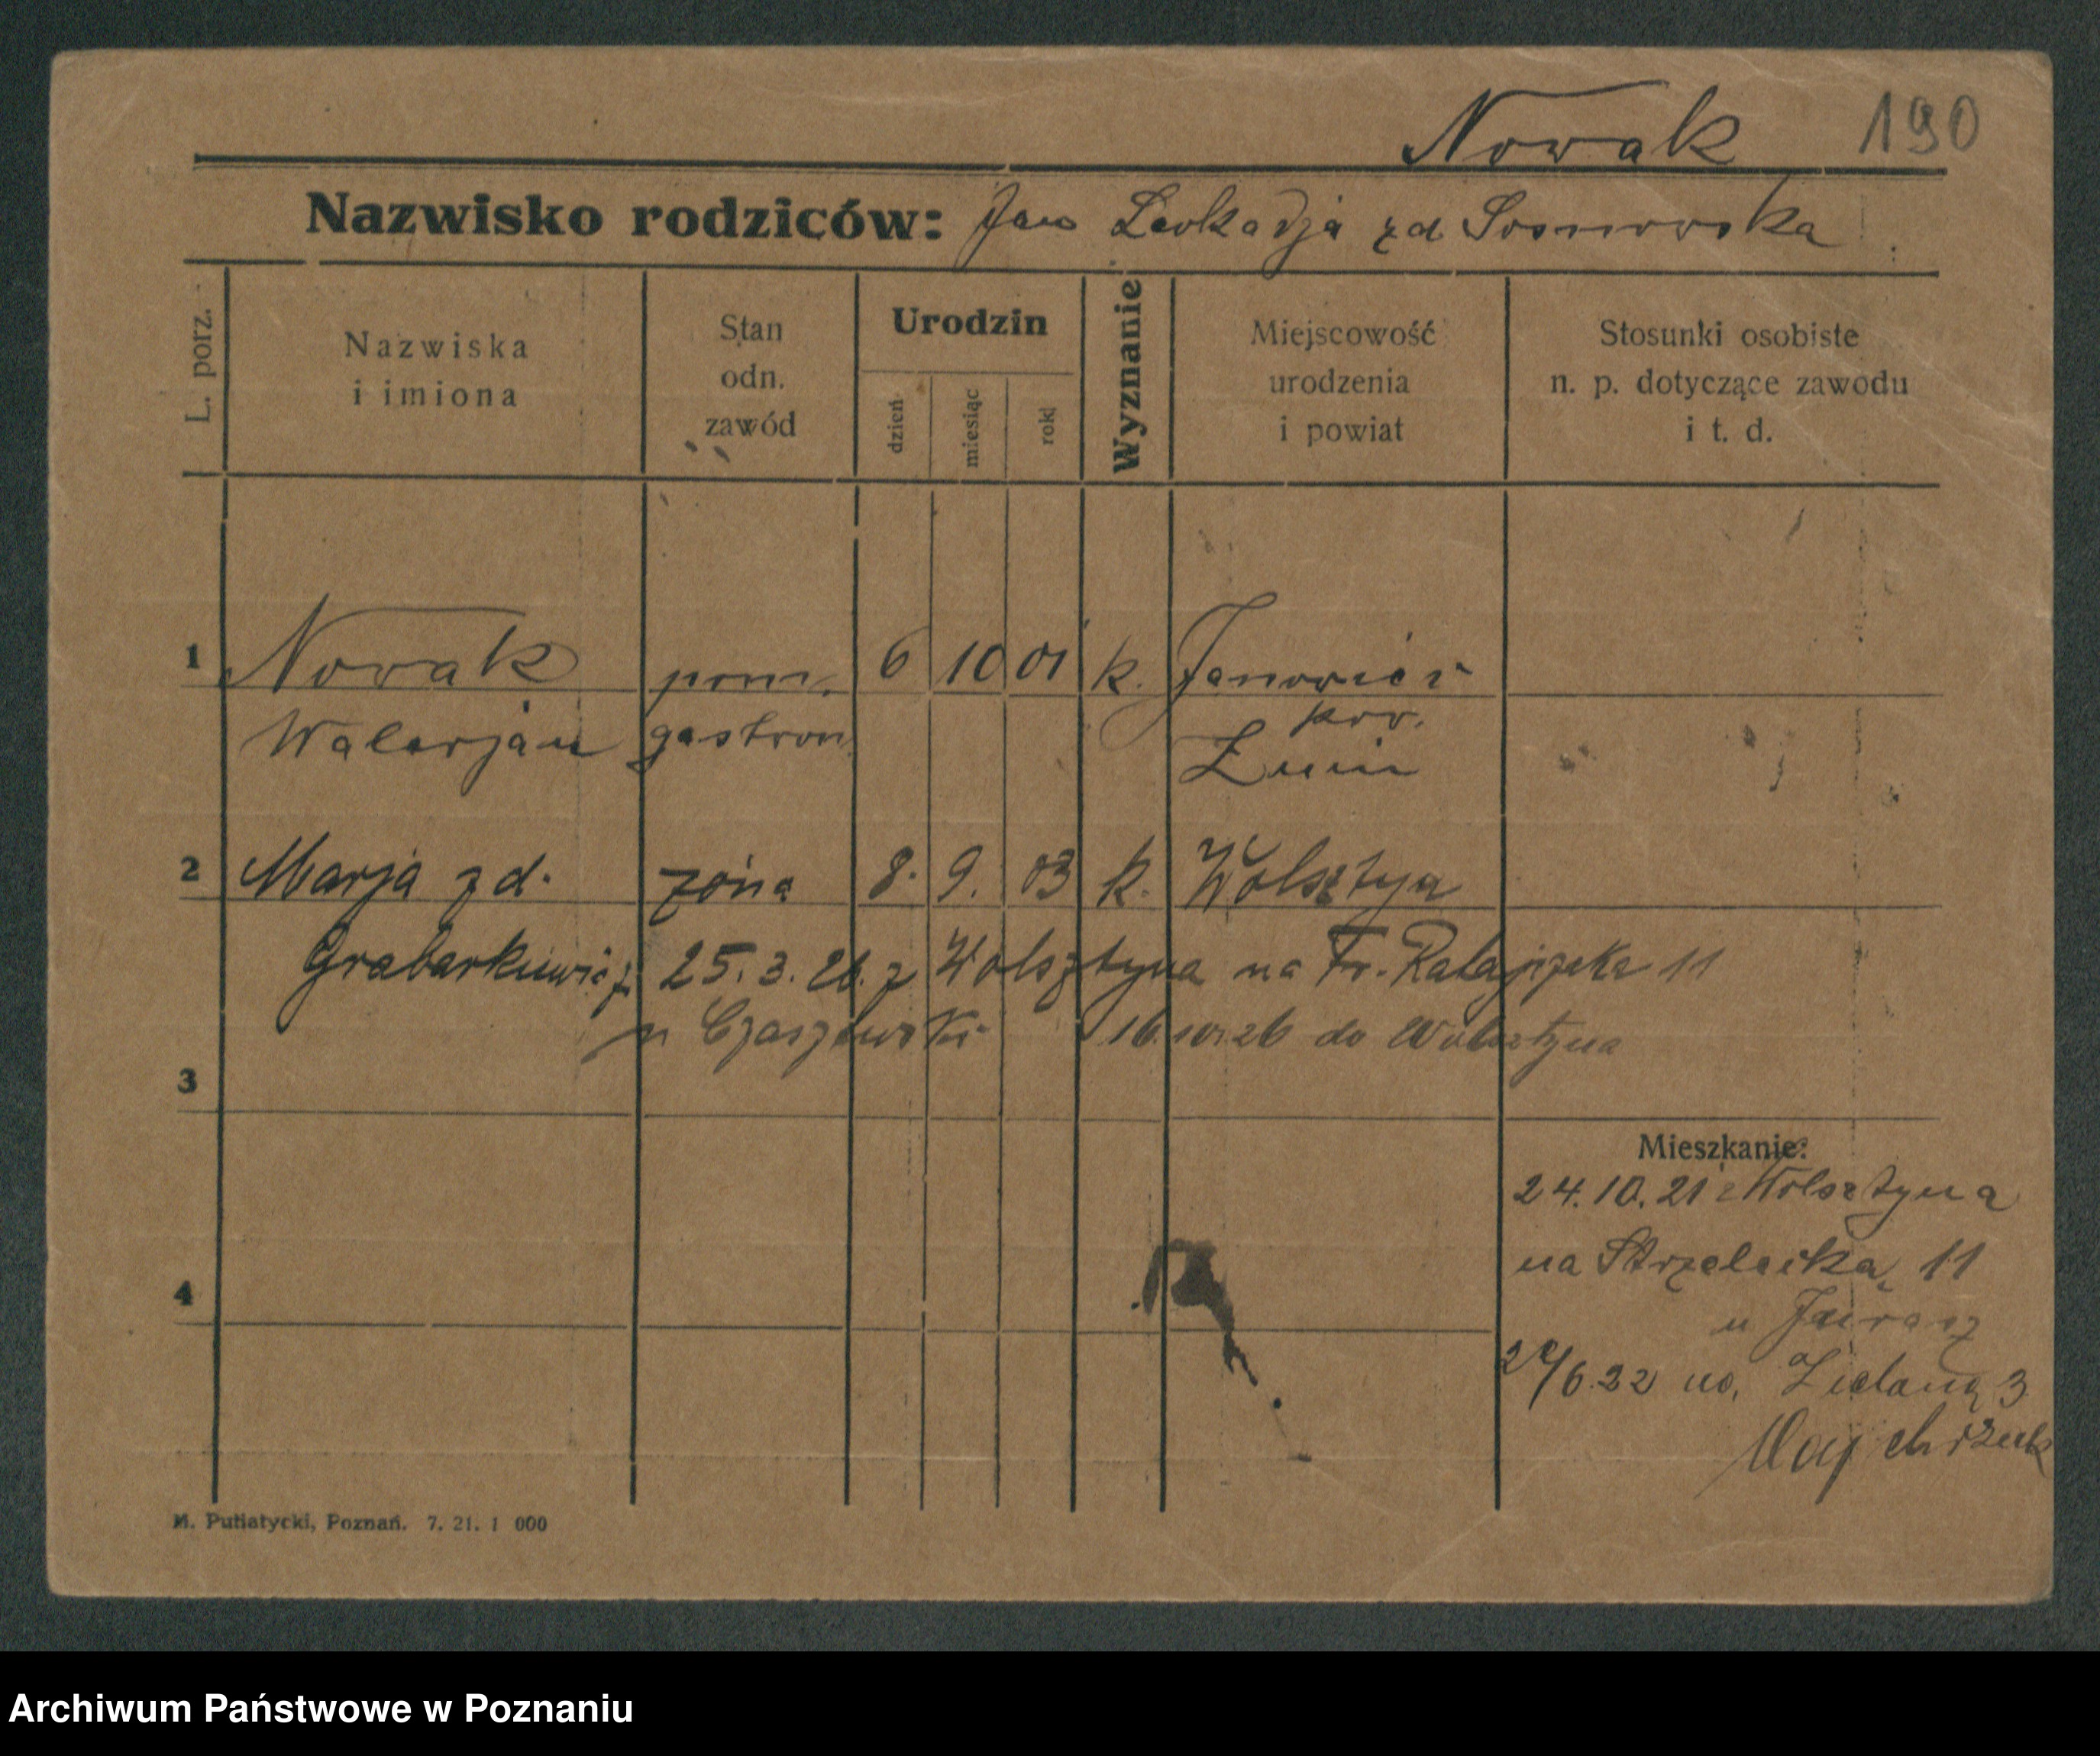 Nowak 190
Nazwisko rodziców: Jan Leokadja zd Sosnowska
L. porz.
Nazwiska
i imiona
Stan
odn.
zawód
Urodzin
dzień
miesiąc
rok
Wyznanie
Miejscowość
urodzenia
i powiat
Stosunki osobiste
n. p. dotyczące zawodu
i t. d.
1 Nowak pom. 6 10 01 k. Janowiec
pow.
Walerjan gastron. Żnin
2 Marja zd. żona 8. 9. 03 k. Wolsztyn
Grabarkiewicz 25.3.26. z Wolsztyna na Fr. Ratajczaka 11
u Czaszewski 16.10.26 do Wolsztyna
3
Mieszkanie:
24.10.21 z Wolsztyna
na Strzelecką 11
4
u Jurasz
/6.22 na Zieloną 3
M. Putiatycki, Poznań. 7. 21. 1 000
Archiwum Państwowe w Poznaniu